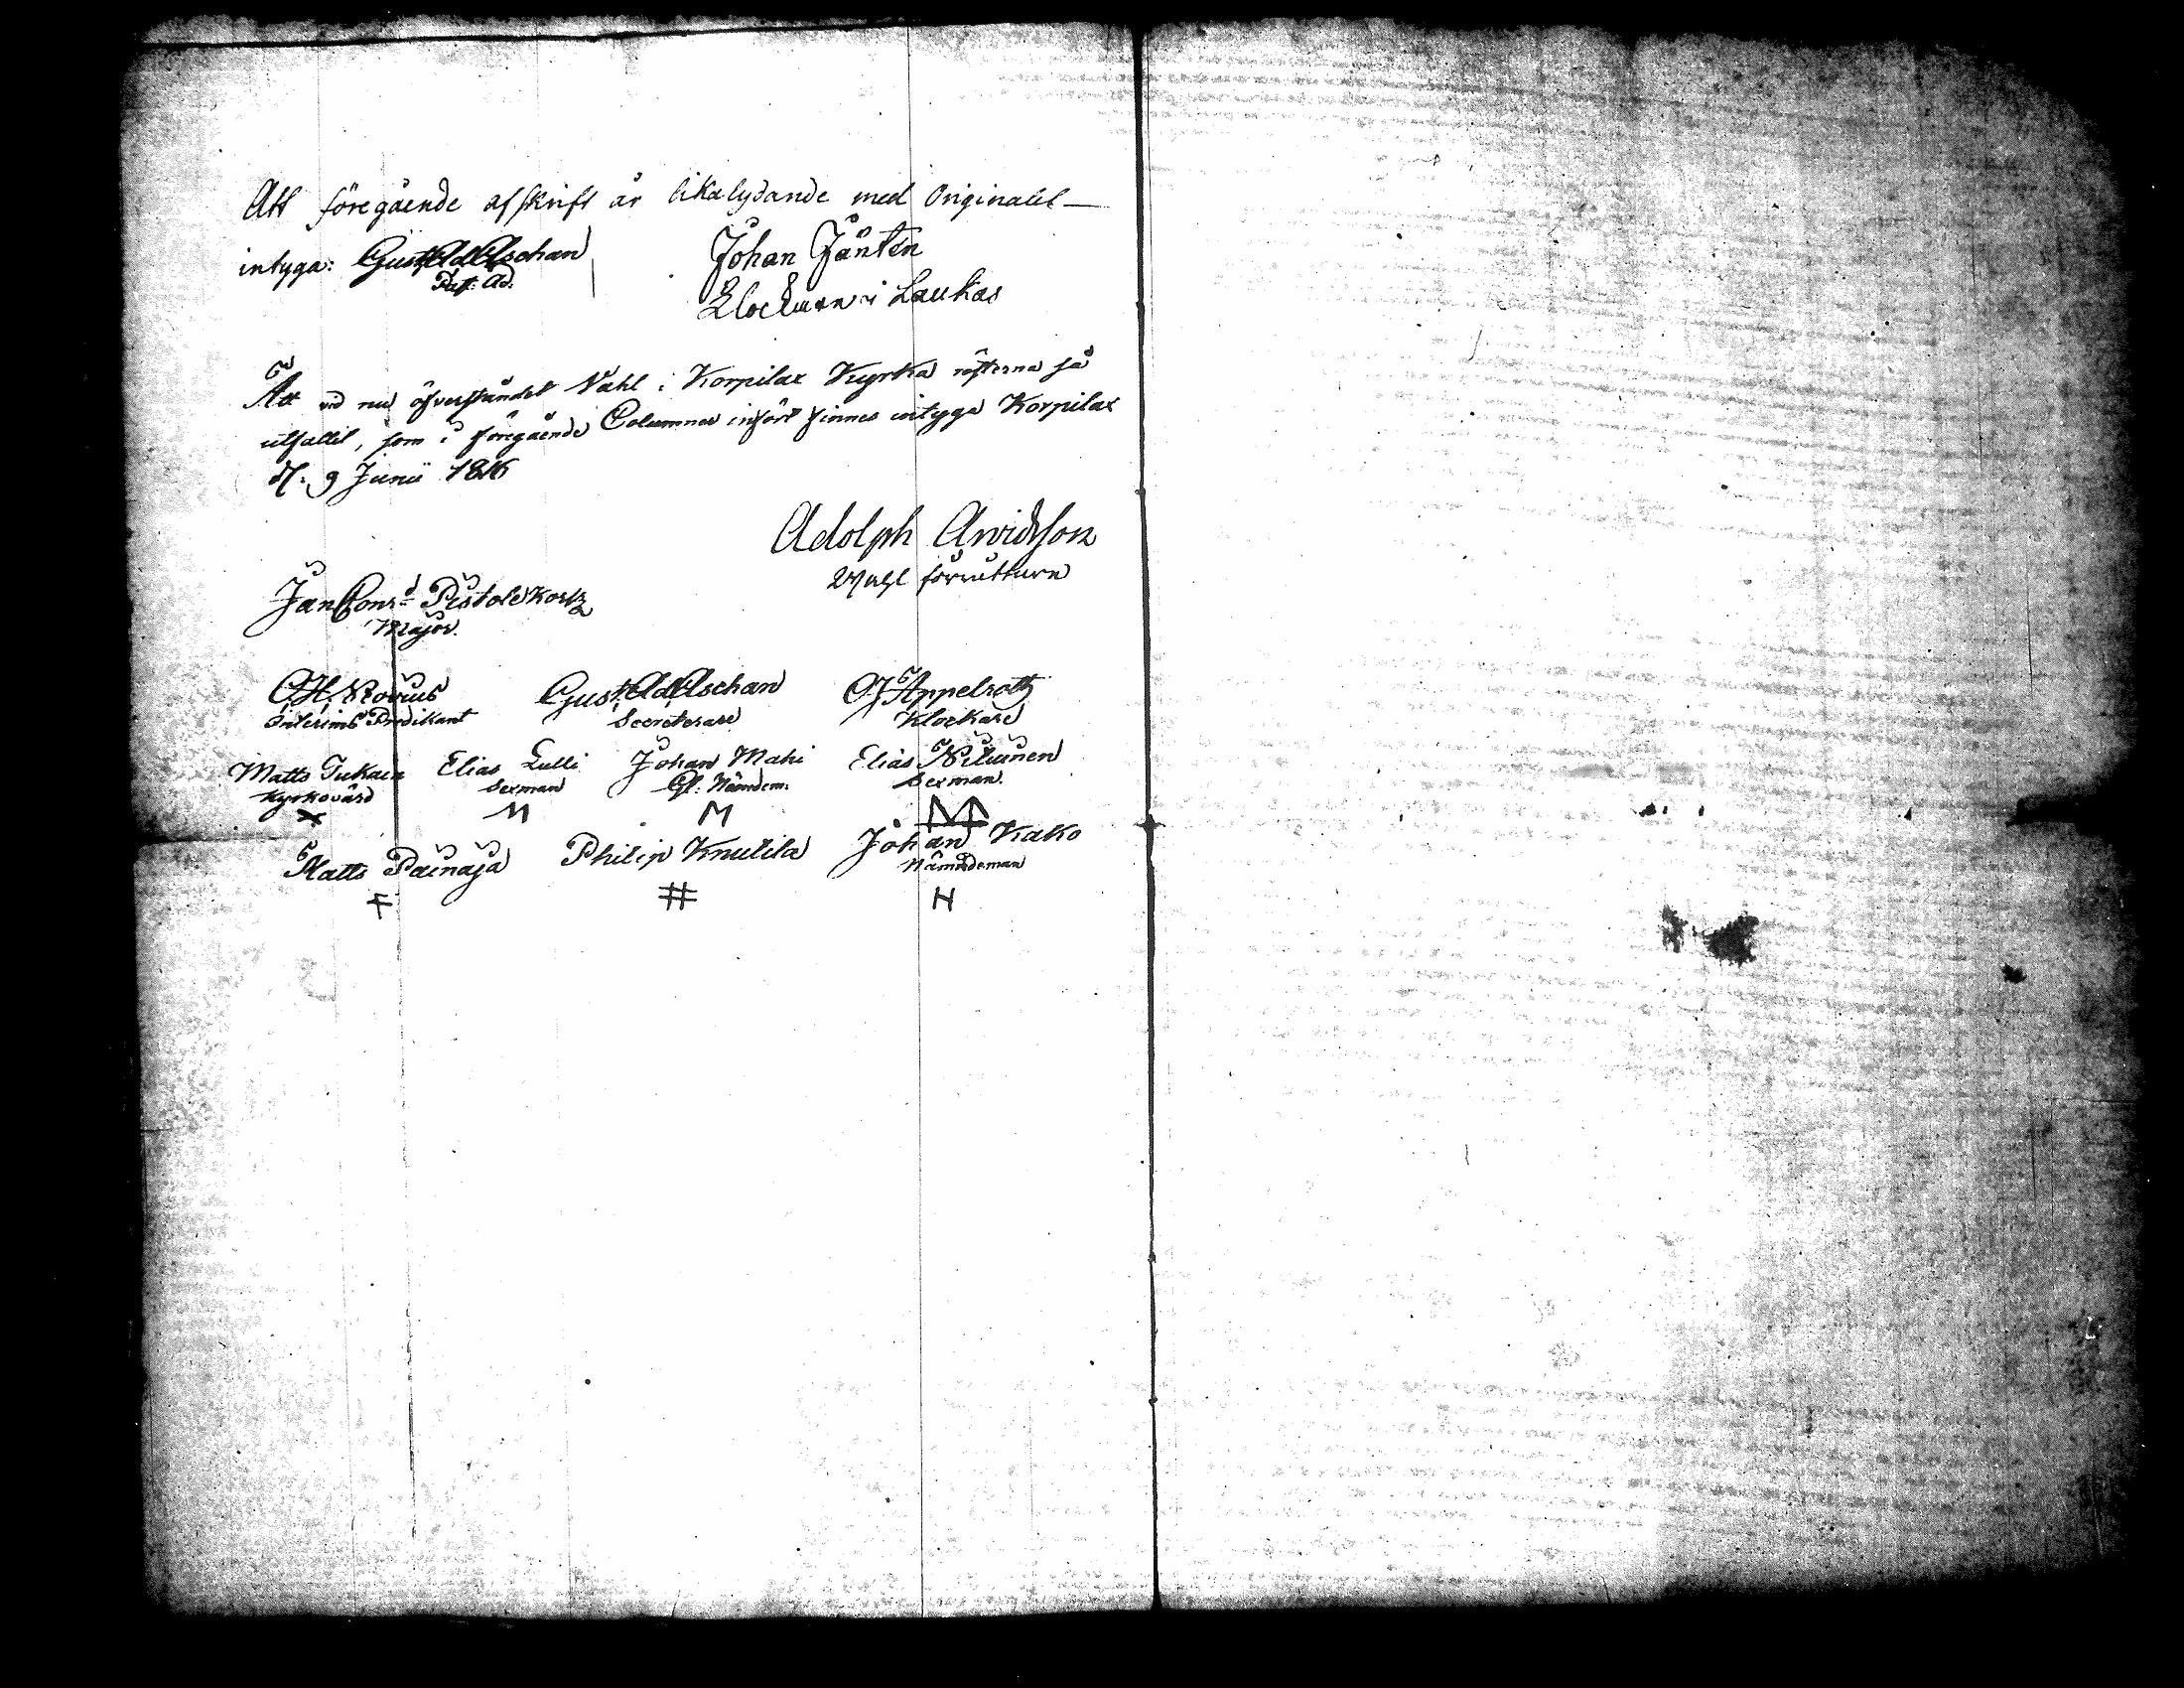 Att föregående afskrift är likalydande med Originalet —
intyga: Gust Ad Aschan
Past: Ad.
Johan Jäntén
Klockare i Laukas
Att vid nu öfverståndet Vahl i Korpilax Kyrka rösterna så
utfallit, som i föregående Columner infört finnes intyga Korpilax
d. 9 Junii 1816
Adolph Arvidsson
Valförrättare
Jan Conr:d Pistolekors
Major.
C. H. Rovius
Interims Predikant
Gust: Ad Aschan
Secreterare
C J Appelroth
Klockare
Matts Tukain
Kyrkovärd
X
Elias Lulli
Sexman
M
Johan Mahi
Gl: Nämdem:
M
Elias Niluinen
Sexman.
Matts Painaja
F
Philip Knutila
#
Johan Kako
Nämndeman
N